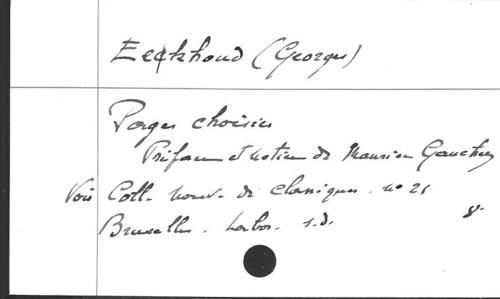 Eeckhoud (Georges)
Pages choisies
Préface et notice de Maurice Gauchez
Voir Coll. nouv. de classiques. no 21
Bruxelles. Labor. s.d. 8°